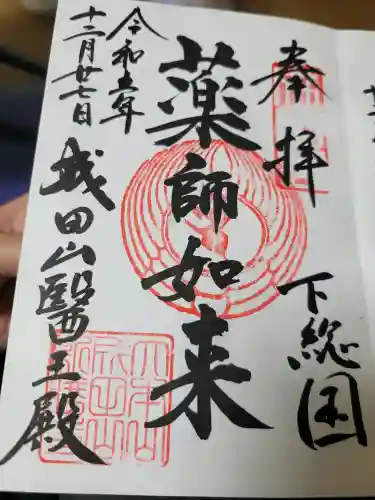 奉拝
下総国
薬師如来
令和五年
十二月廿七日
成田山醫王殿